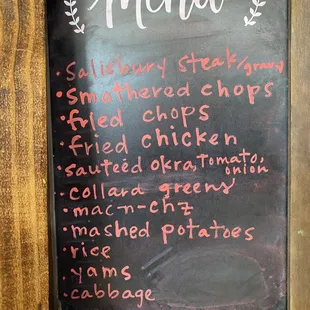 Menu
• Salisbury steak/gravy
• Smothered chops
• fried chops
• fried chicken
• sauteéd okra, tomato, onion
• collard greens
• mac-n-chz
• mashed potatoes
• rice
• yams
• cabbage